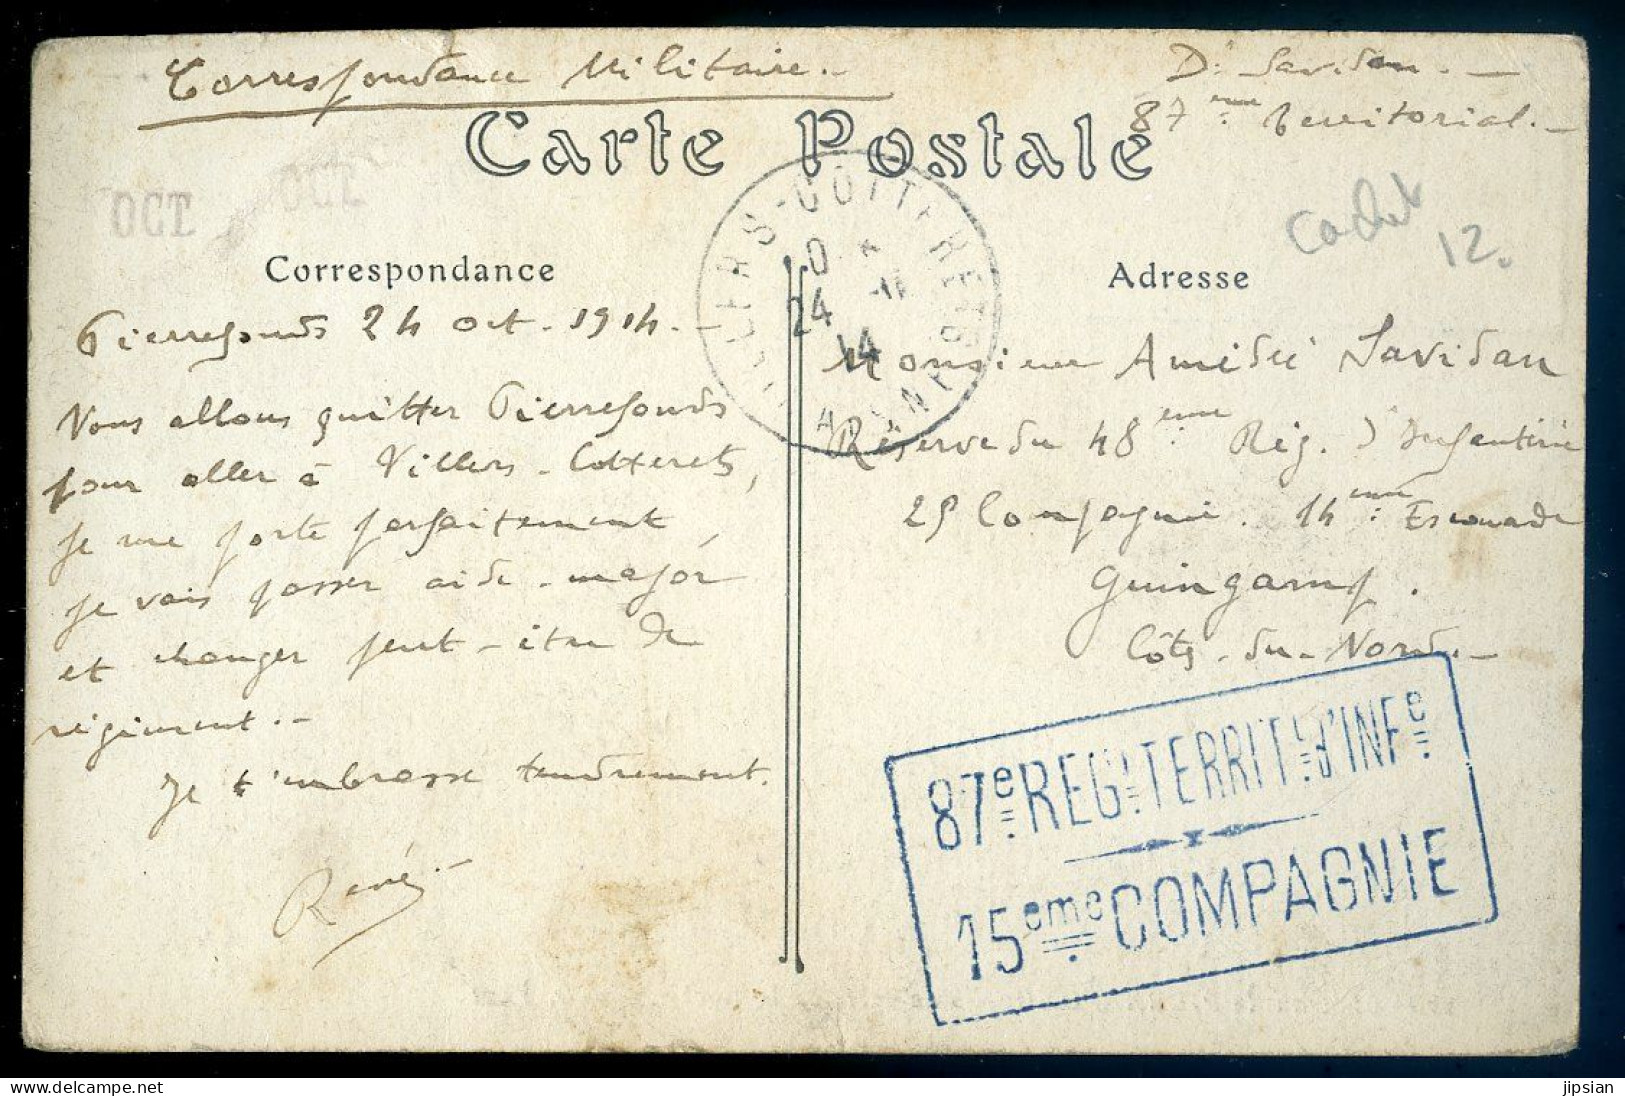 Correspondance Militaire. -
Dr Savidan. -
87ème Territorial. -
Carte Postale
OCT
OCT
VILLERS-COTTERETS
AISNE
24
14
Cachet
12.
Correspondance
Adresse
Pierrefonds 24 oct. 1914. -
Nous allons quitter Pierrefonds
pour aller à Villers-Cotterets,
je me porte parfaitement,
je vais passer aide-major
et changer peut-être de
régiment. -
Je t'embrasse tendrement.
René. -
Monsieur Amédée Savidan
Réserve du 48ème Rég. d'Infanterie
25 Compagnie. 14ème Escouade
Guingamp.
Côtes-du-Nord. -
87e REGt TERRITl D'INFe
15eme COMPAGNIE
jipsian